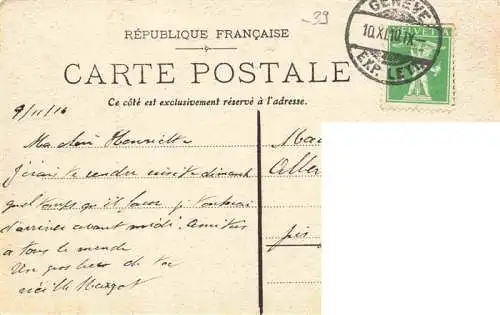 39
RÉPUBLIQUE FRANÇAISE
CARTE POSTALE
Ce côté est exclusivement réservé à l'adresse.
GENÈVE
10.XI.10.IX
EXP. LETT.
HELVETIA
9/11/10
Ma chère Henriette
J'irai te rendre visite dimanche
quel temps qu'il fasse
d'arriver avant midi. Amitiés
à tous le monde
Un gros bec de ta
vieille Margot